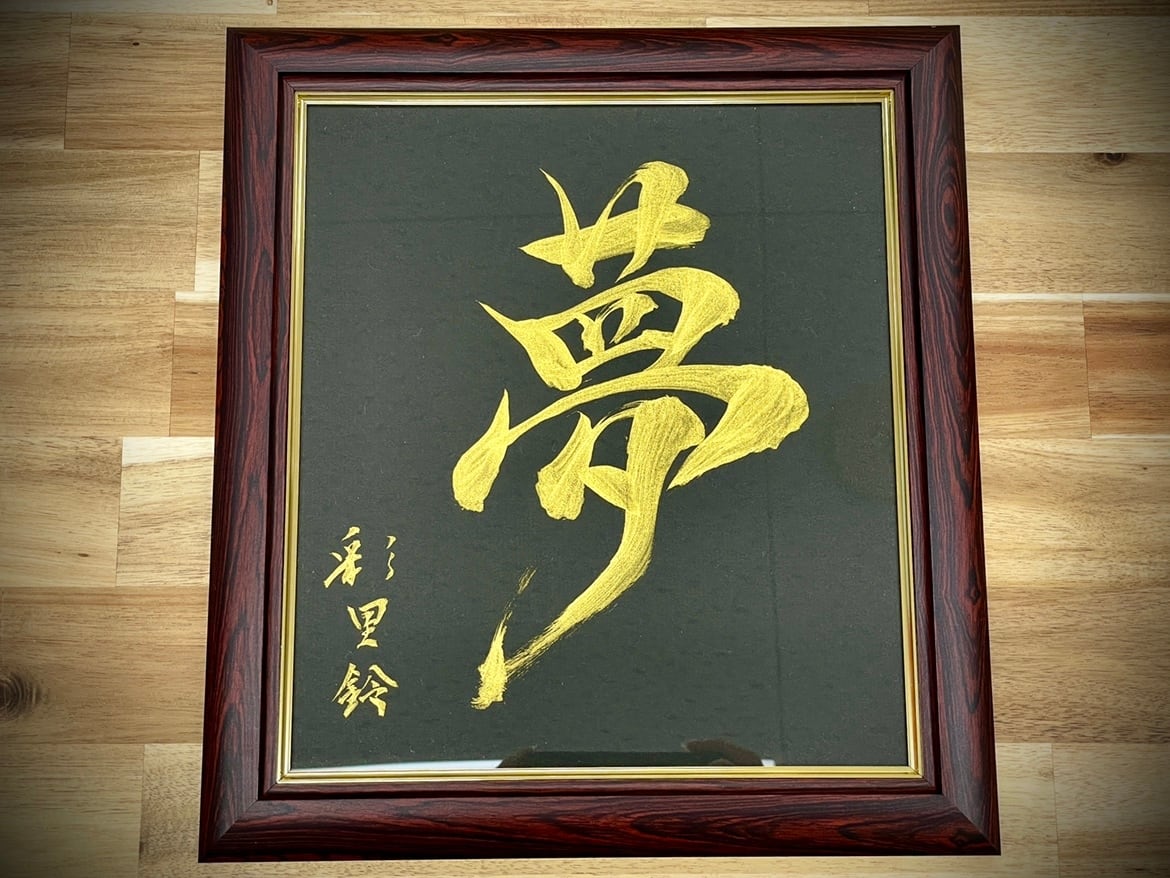 夢
彩里鈴